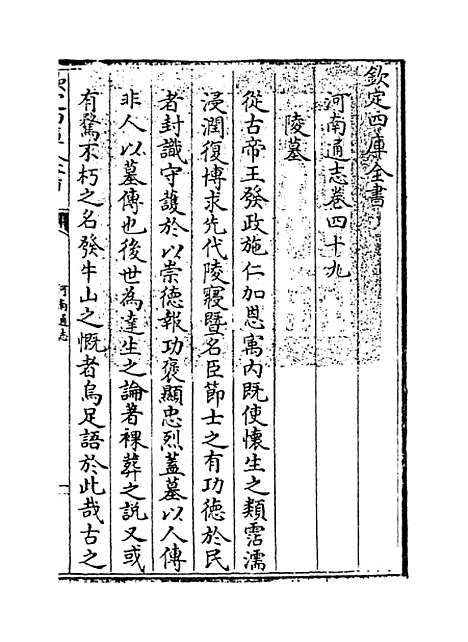 欽定四庫全書
河南通志卷四十九
陵墓
從古帝王發政施仁加恩寓内既使懷生之類霑濡
浸潤復博求先代陵寢暨名臣節士之有功德於民
者封識守護於以崇德報功褒顯忠烈蓋墓以人傳
非人以墓傳也後世為達生之論著裸葬之說又或
有騖不朽之名發牛山之慨者烏足語於此哉古之
河南通志
一